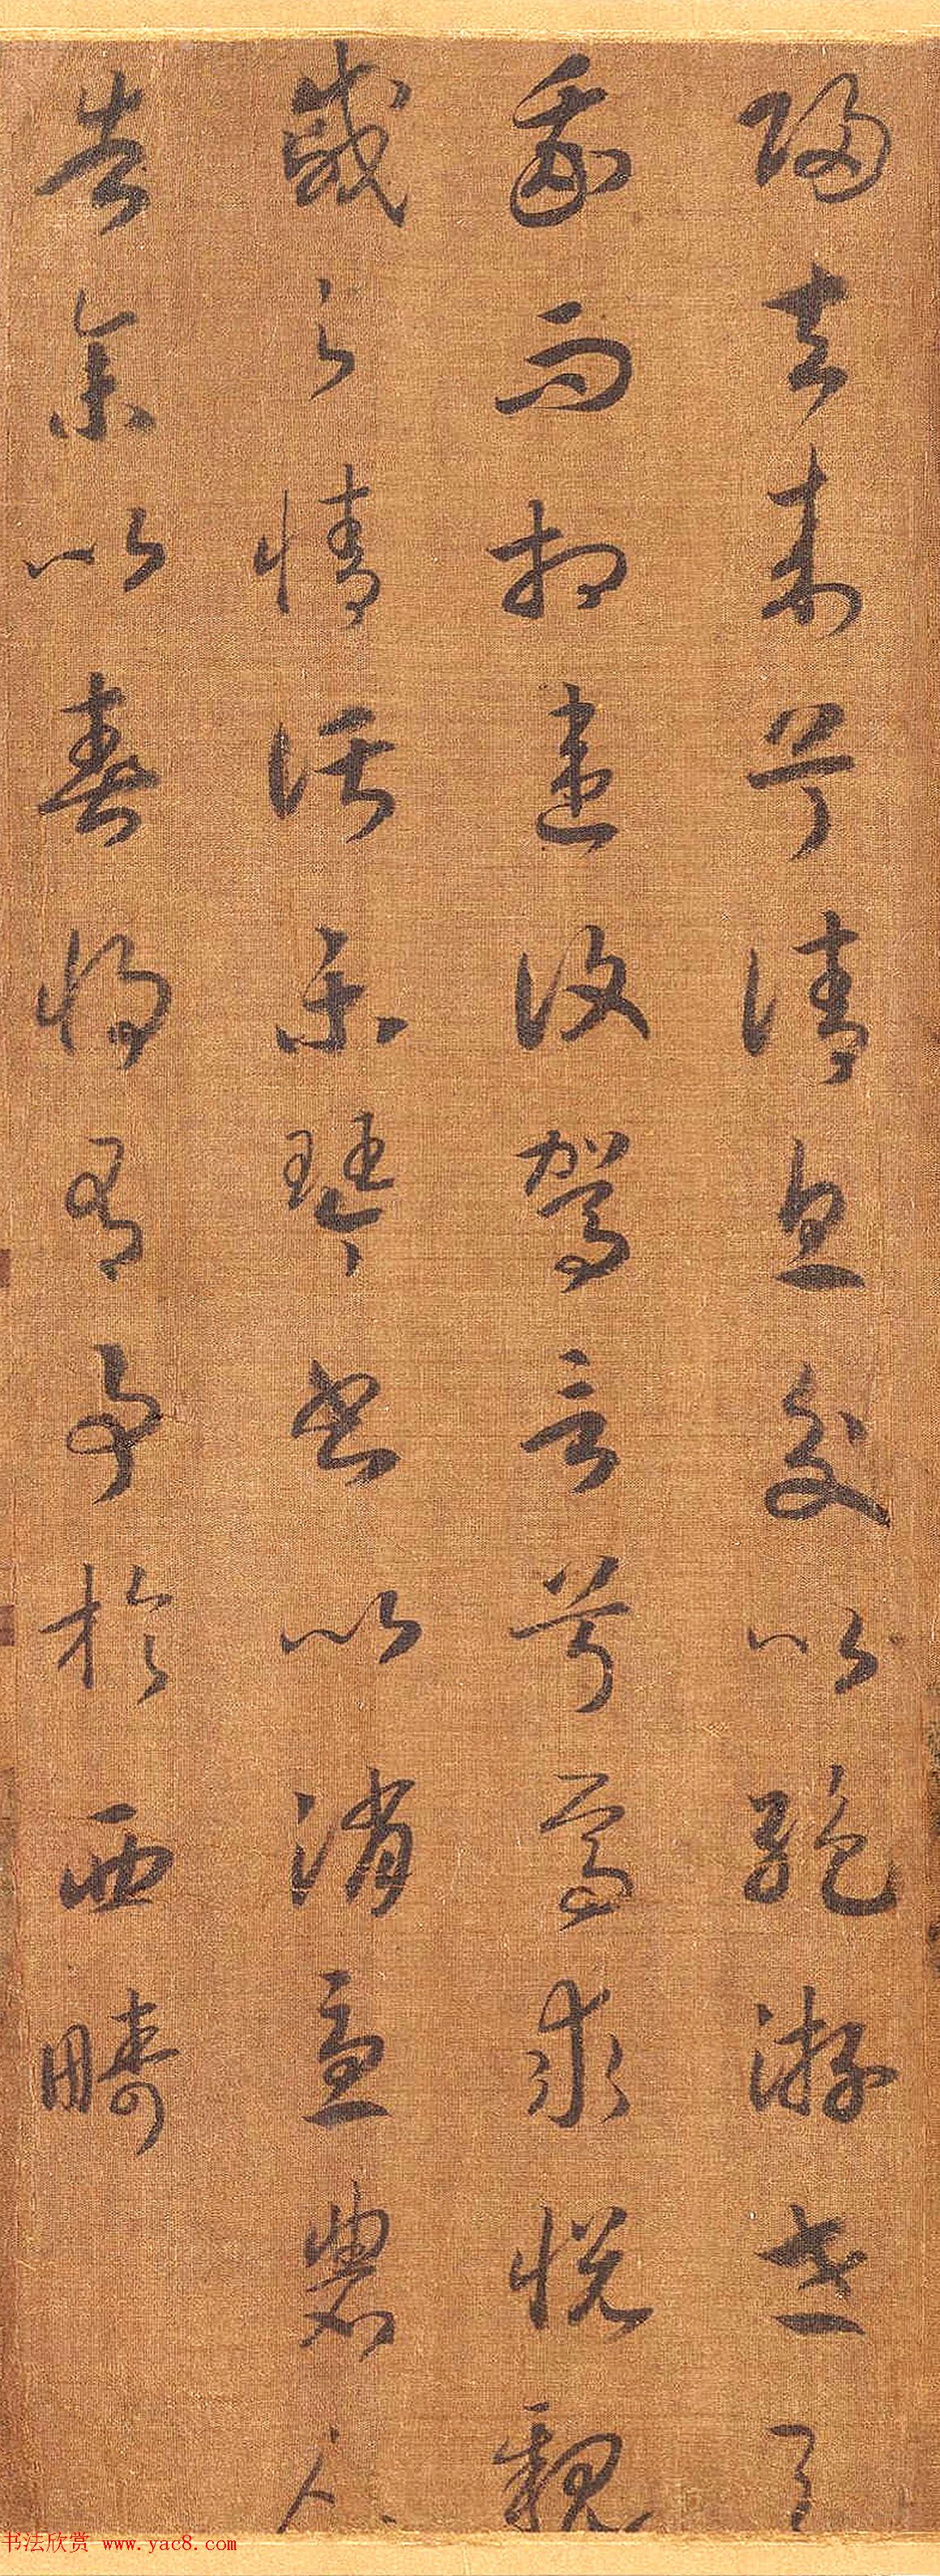 歸去来兮請息交以絶游世与
我而相遺復駕言兮焉求悦親
戚之情話樂琴書以消憂農人
告余以春將有事於西疇
书法欣赏 www.yac8.com